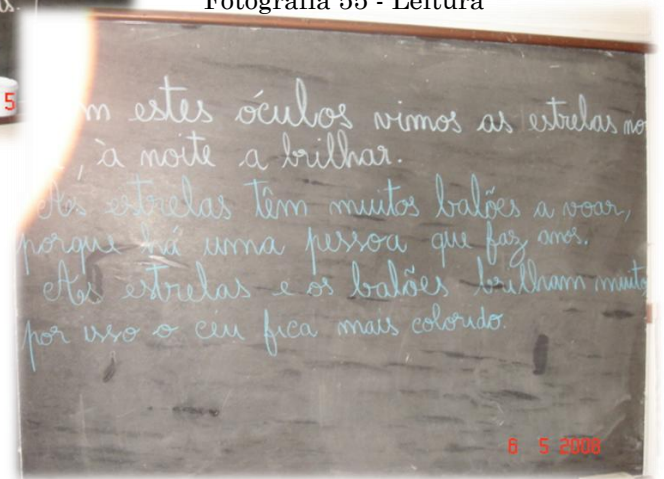 Fotografia 55 - Leitura
5
m estes óculos vimos as estrelas no
, à noite a brilhar.
As estrelas têm muitos balões a voar,
porque há uma pessoa que faz anos.
As estrelas e os balões brilham muito
por isso o céu fica mais colorido.
6 5 2008